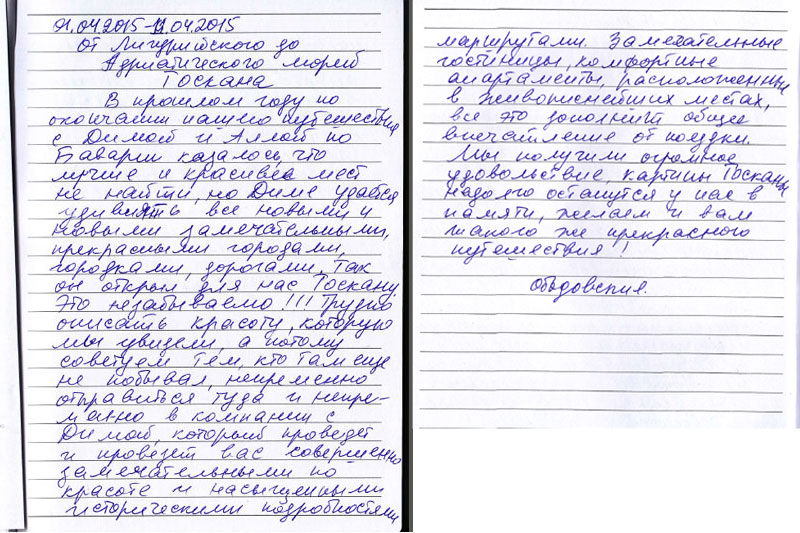 01.04.2015-11.04.2015
От Лигурийского до
Адриатического морей
Тоскана
В прошлом году по
окончании нашего путешествия
с Димой и Аллой по
Баварии казалось, что
лучше и красивее мест
не найти, но Диме удается
удивлять все новыми и
новыми замечательными,
прекрасными городами,
городками, дорогами. Так
он открыл для нас Тоскану.
Это незабываемо!!! Трудно
описать красоту, которую
мы увидели, а потому
советуем тем, кто там еще
не побывал, непременно
отправиться туда и непре-
менно в компании с
Димой, который проведет
и провезет вас совершенно
замечательными по
красоте и насыщенными
историческими подробностями
маршрутами. Замечательные
гостиницы, комфортные
апартаменты, расположенные
в живописнейших местах,
все это дополнит общее
впечатление от поездки.
Мы получили огромное
удовольствие, картины Тосканы
надолго останутся у нас в
памяти, желаем и вам
такого же прекрасного
путешествия!